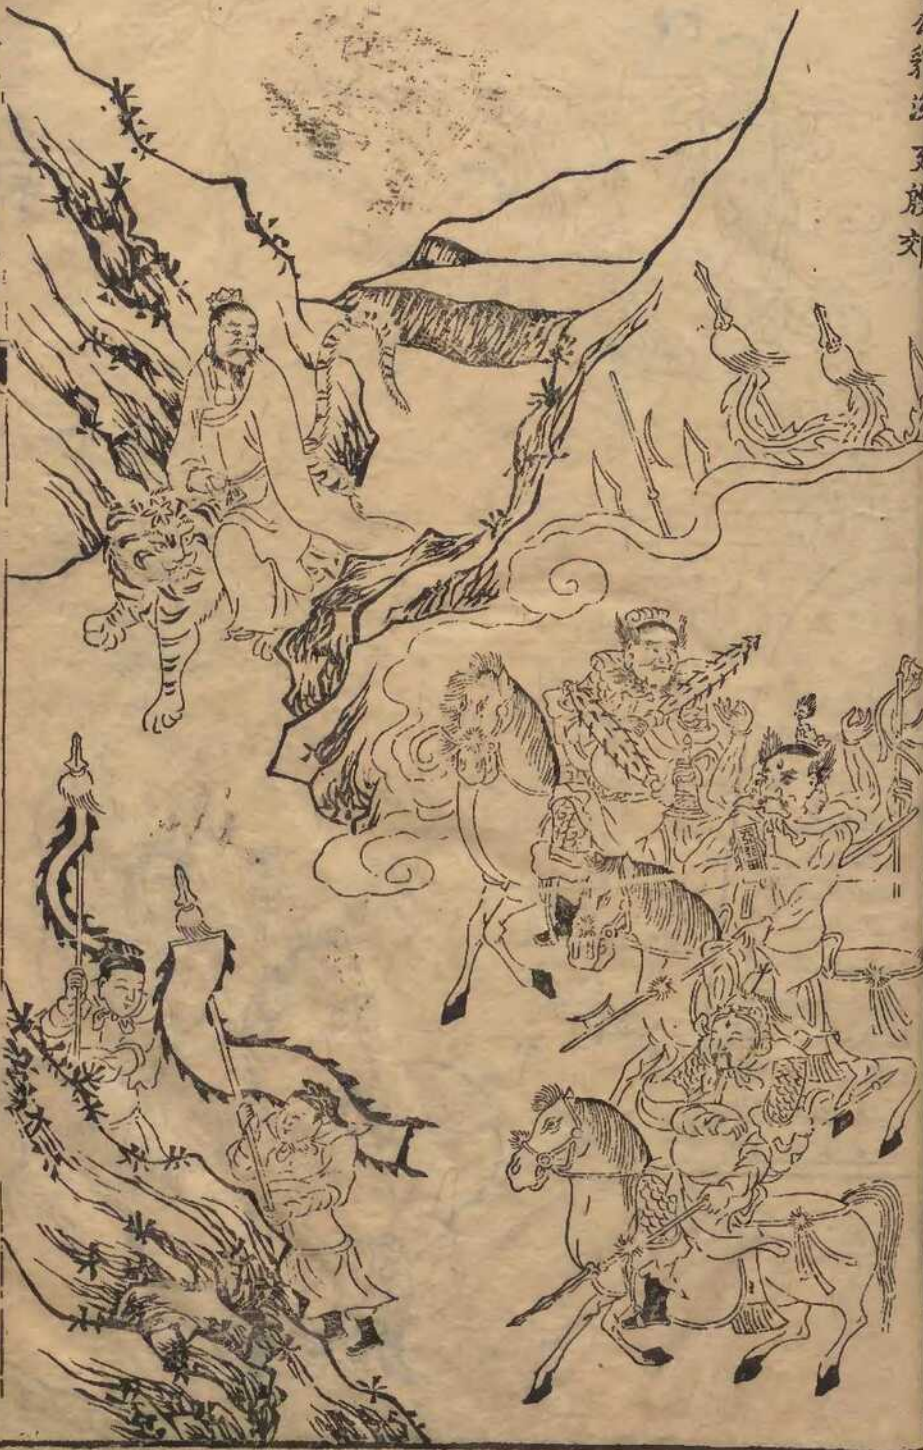 公豹說反殷郊